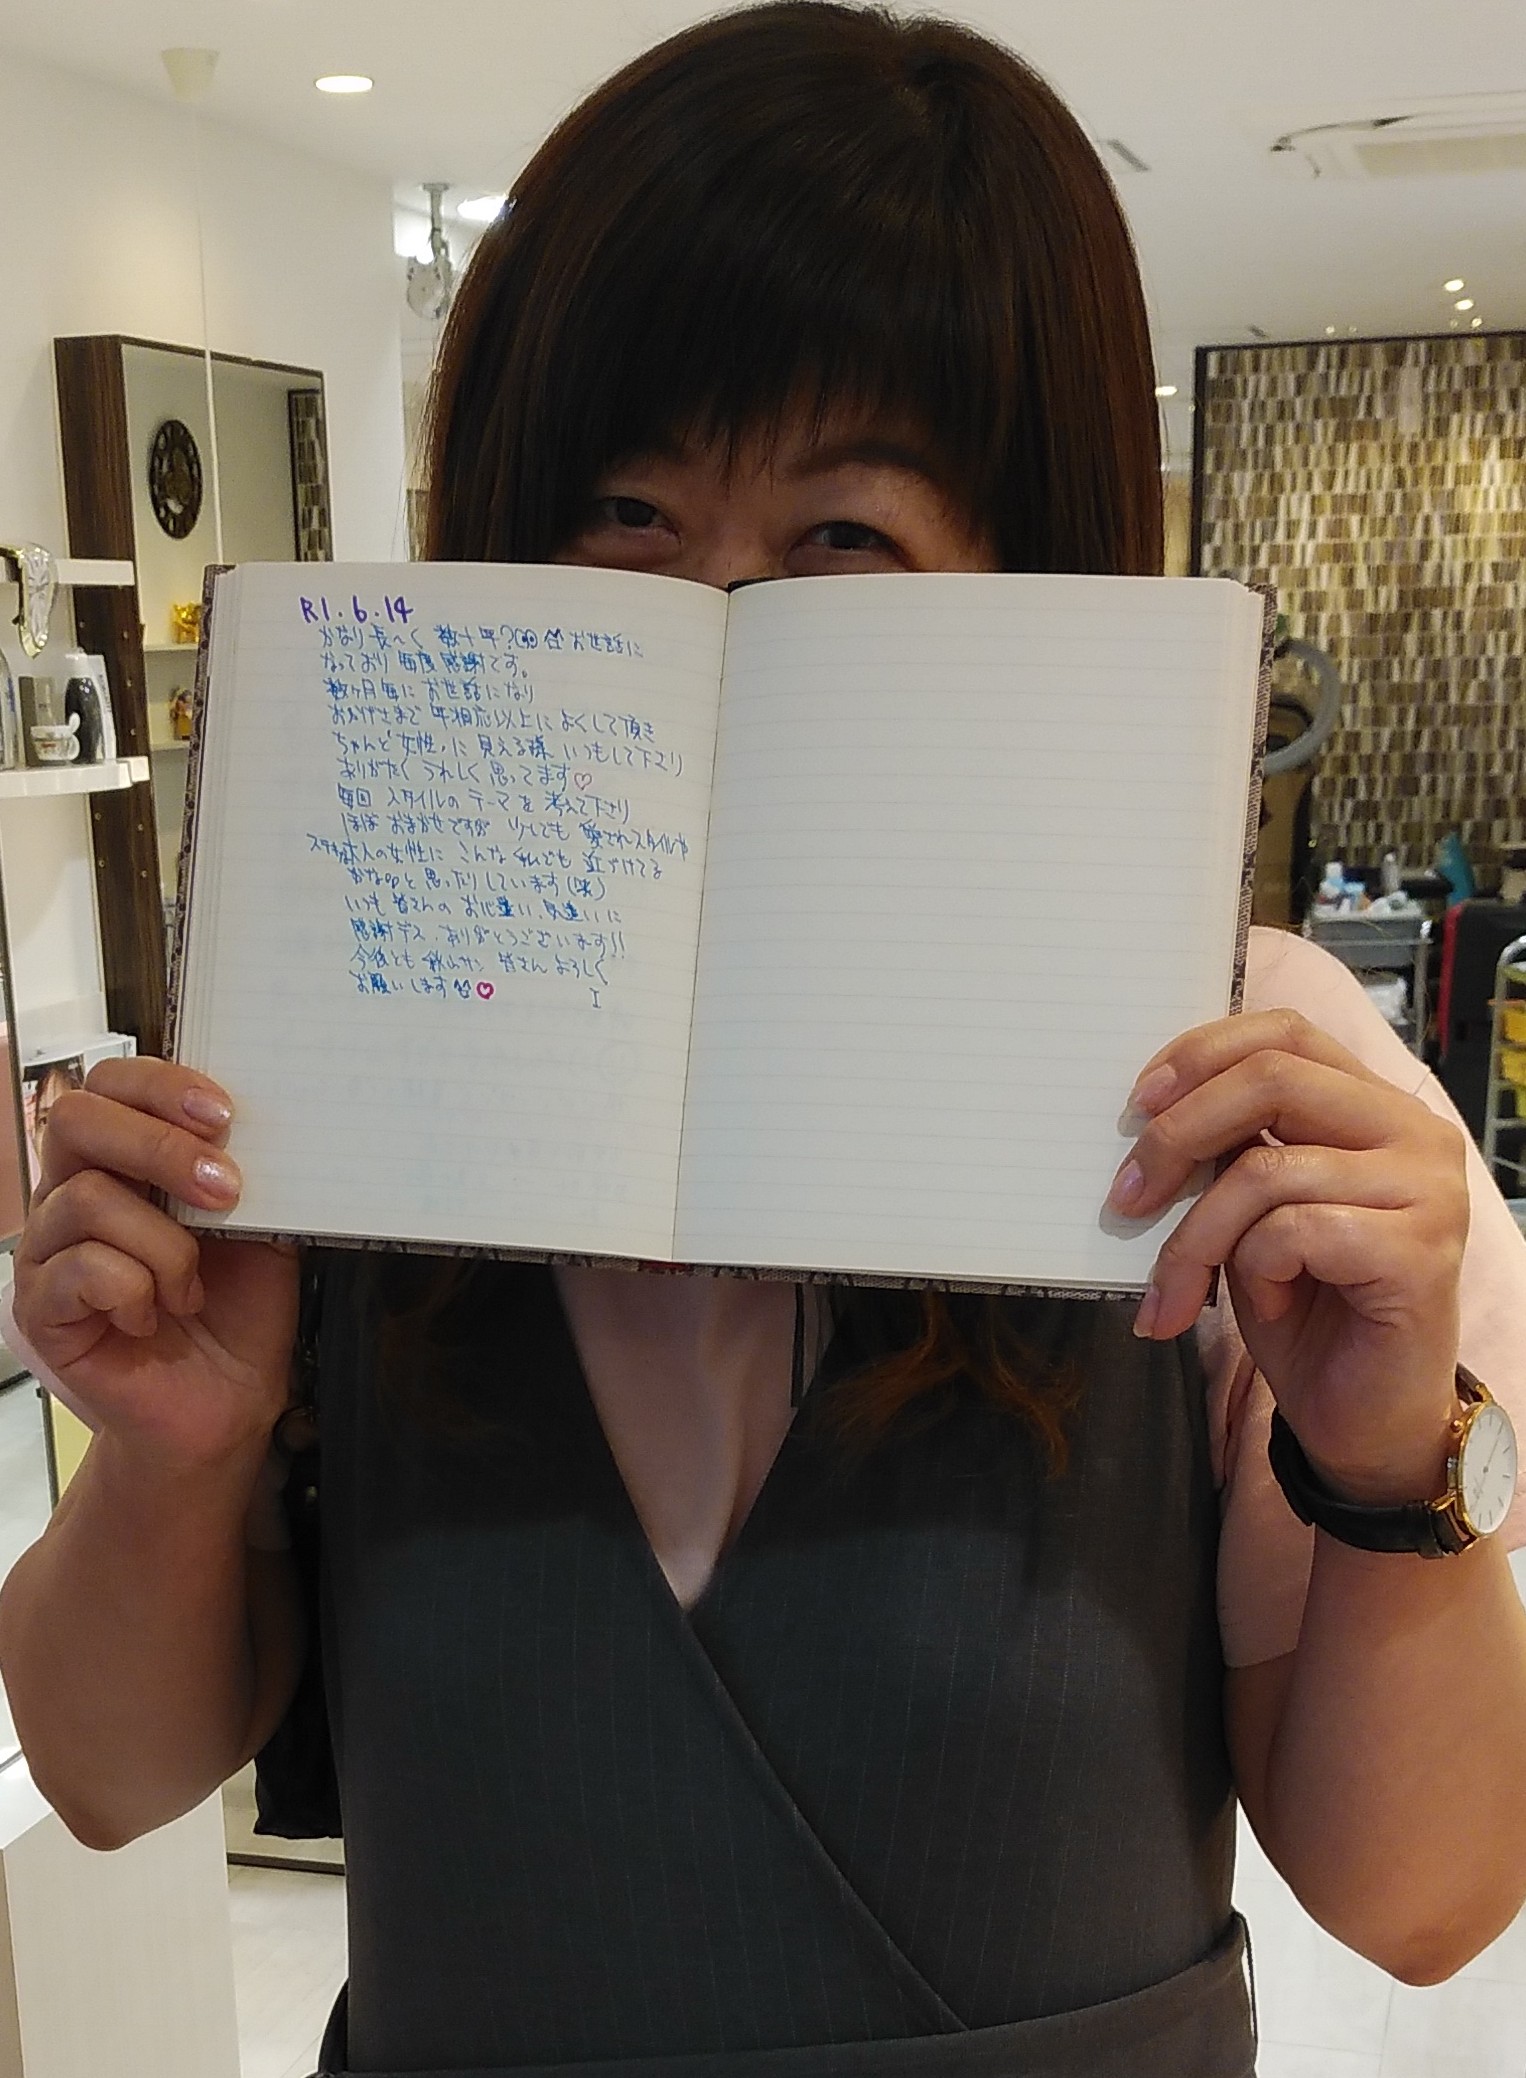 R1.6.14
かなり長〜く 数十年? お世話に
なっており 毎度感謝です。
数ヶ月毎に お世話になり
おかげさまで 年相応以上に よくして頂き
ちゃんと"女性"に 見える様 いつもして下さり
ありがたく うれしく 思ってます♡
毎回 スタイルの テーマを 考えて下さり
ほぼ おまかせですが 少しでも 愛されスタイルや
ステキ大人の女性に こんな私でも 近づけてる
かなと 思ったりしています(笑)
いつも 皆さんの お心遣い、気遣いに
感謝デス、ありがとうございます!!
今後とも 秋山サン 皆さん よろしく
お願いします♡
I